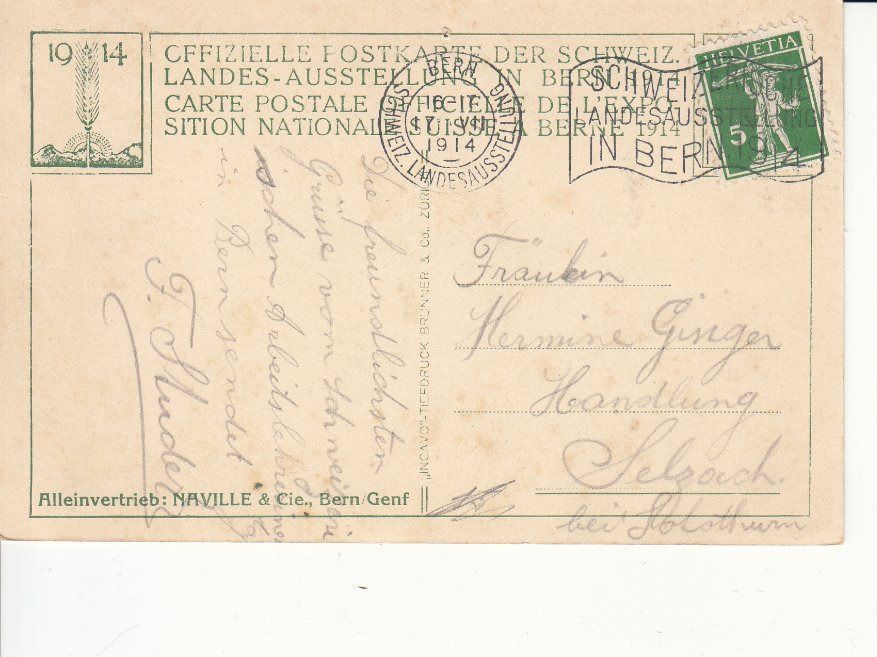 19 14
OFFIZIELLE POSTKARTE DER SCHWEIZ.
LANDES-AUSSTELLUNG IN BERN 1914
CARTE POSTALE OFFICIELLE DE L'EXPO-
SITION NATIONALE SUISSE A BERNE 1914
BERN
SCHWEIZ. LANDESAUSSTELLUNG
16-17
17. VII
1914
SCHWEIZERISCHE
LANDESAUSSTELLUNG
IN BERN 1914
HELVETIA
5
Die freundlichsten
Grüsse vom schweizeri
schen Arbeitslehrerinnen
in Bern sendet
F. Studer
"INCAVO"-TIEFDRUCK BRUNNER & Co., ZÜRICH
Fräulein
Hermine Ginger
Handlung
Selzach.
bei Solothurn
Alleinvertrieb: NAVILLE & Cie., Bern/Genf